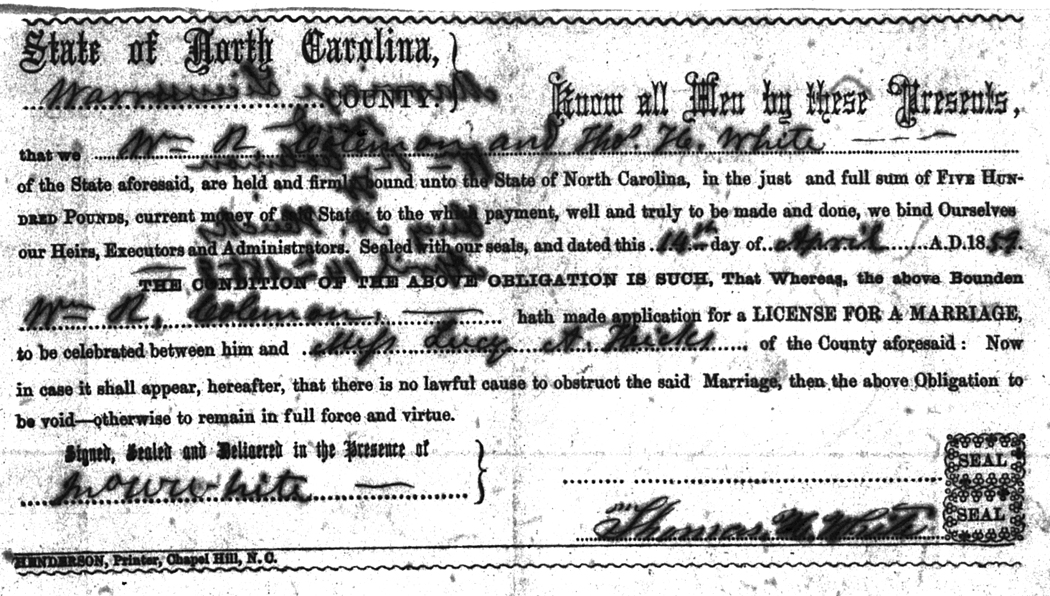 State of North Carolina,
COUNTY. Know all Men by these Presents,
that we Wm R. Coleman and Thos. H. White
of the State aforesaid, are held and firmly bound unto the State of North Carolina, in the just and full sum of FIVE HUN-
DRED POUNDS, current money of said State; to the which payment, well and truly to be made and done, we bind Ourselves
our Heirs, Executors and Administrators. Sealed with our seals, and dated this 14th day of April A.D. 1859.
THE CONDITION OF THE ABOVE OBLIGATION IS SUCH, That Whereas, the above Bounden
Wm R. Coleman, hath made application for a LICENSE FOR A MARRIAGE,
to be celebrated between him and Miss Lucy A. Hicks of the County aforesaid: Now
in case it shall appear, hereafter, that there is no lawful cause to obstruct the said Marriage, then the above Obligation to
be void—otherwise to remain in full force and virtue.
Signed, Sealed and Delivered in the Presence of
Jno W White
SEAL
Thomas H. White SEAL
HENDERSON, Printer, Chapel Hill, N. C.